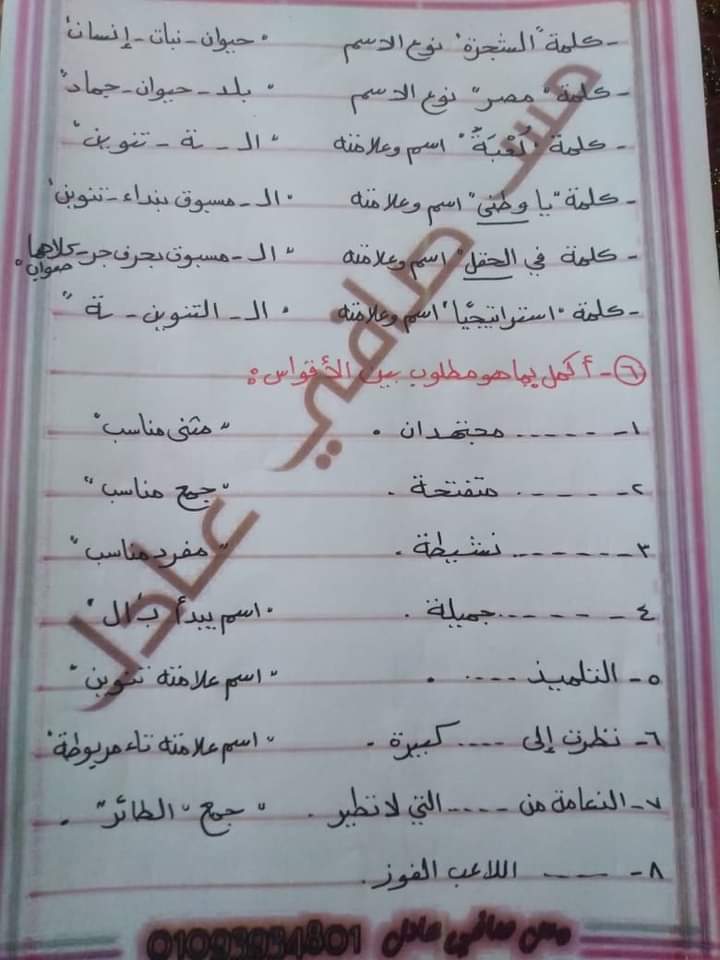 - كلمة "الشجرة" نوع الاسم "حيوان - نبات - إنسان"
- كلمة "مصر" نوع الاسم "بلد - حيوان - جماد"
- كلمة "لُعْبَةٌ" اسم وعلامته "الـ - ـة - تنوين"
- كلمة "يا وطنى" اسم وعلامته "الـ - مسبوق بنداء - تنوين"
- كلمة في "الحقل" اسم وعلامته "الـ - مسبوق بحرف جر - كلاهما صواب"
- كلمة "استراتيجيًا" اسم وعلامته "الـ - التنوين - ـة"
٦ - أكمل بما هو مطلوب بين الأقواس:
١- ...... مجتهدان . "مثنى مناسب"
٢- ..... متفتحة . "جمع مناسب"
٣- ...... نشيطة . "مفرد مناسب"
٤- ...... جميلة . "اسم يبدأ بـ ال"
٥- التلميذ ..... . "اسم علامته تنوين"
٦- نظرت إلى .... كبيرة . "اسم علامته تاء مربوطة"
٧- النعامة من .... التي لا تطير . "جمع "الطائر" .
٨- .... اللاعب الفوز .
مس صافي عادل
مس صافي عادل 01093934801